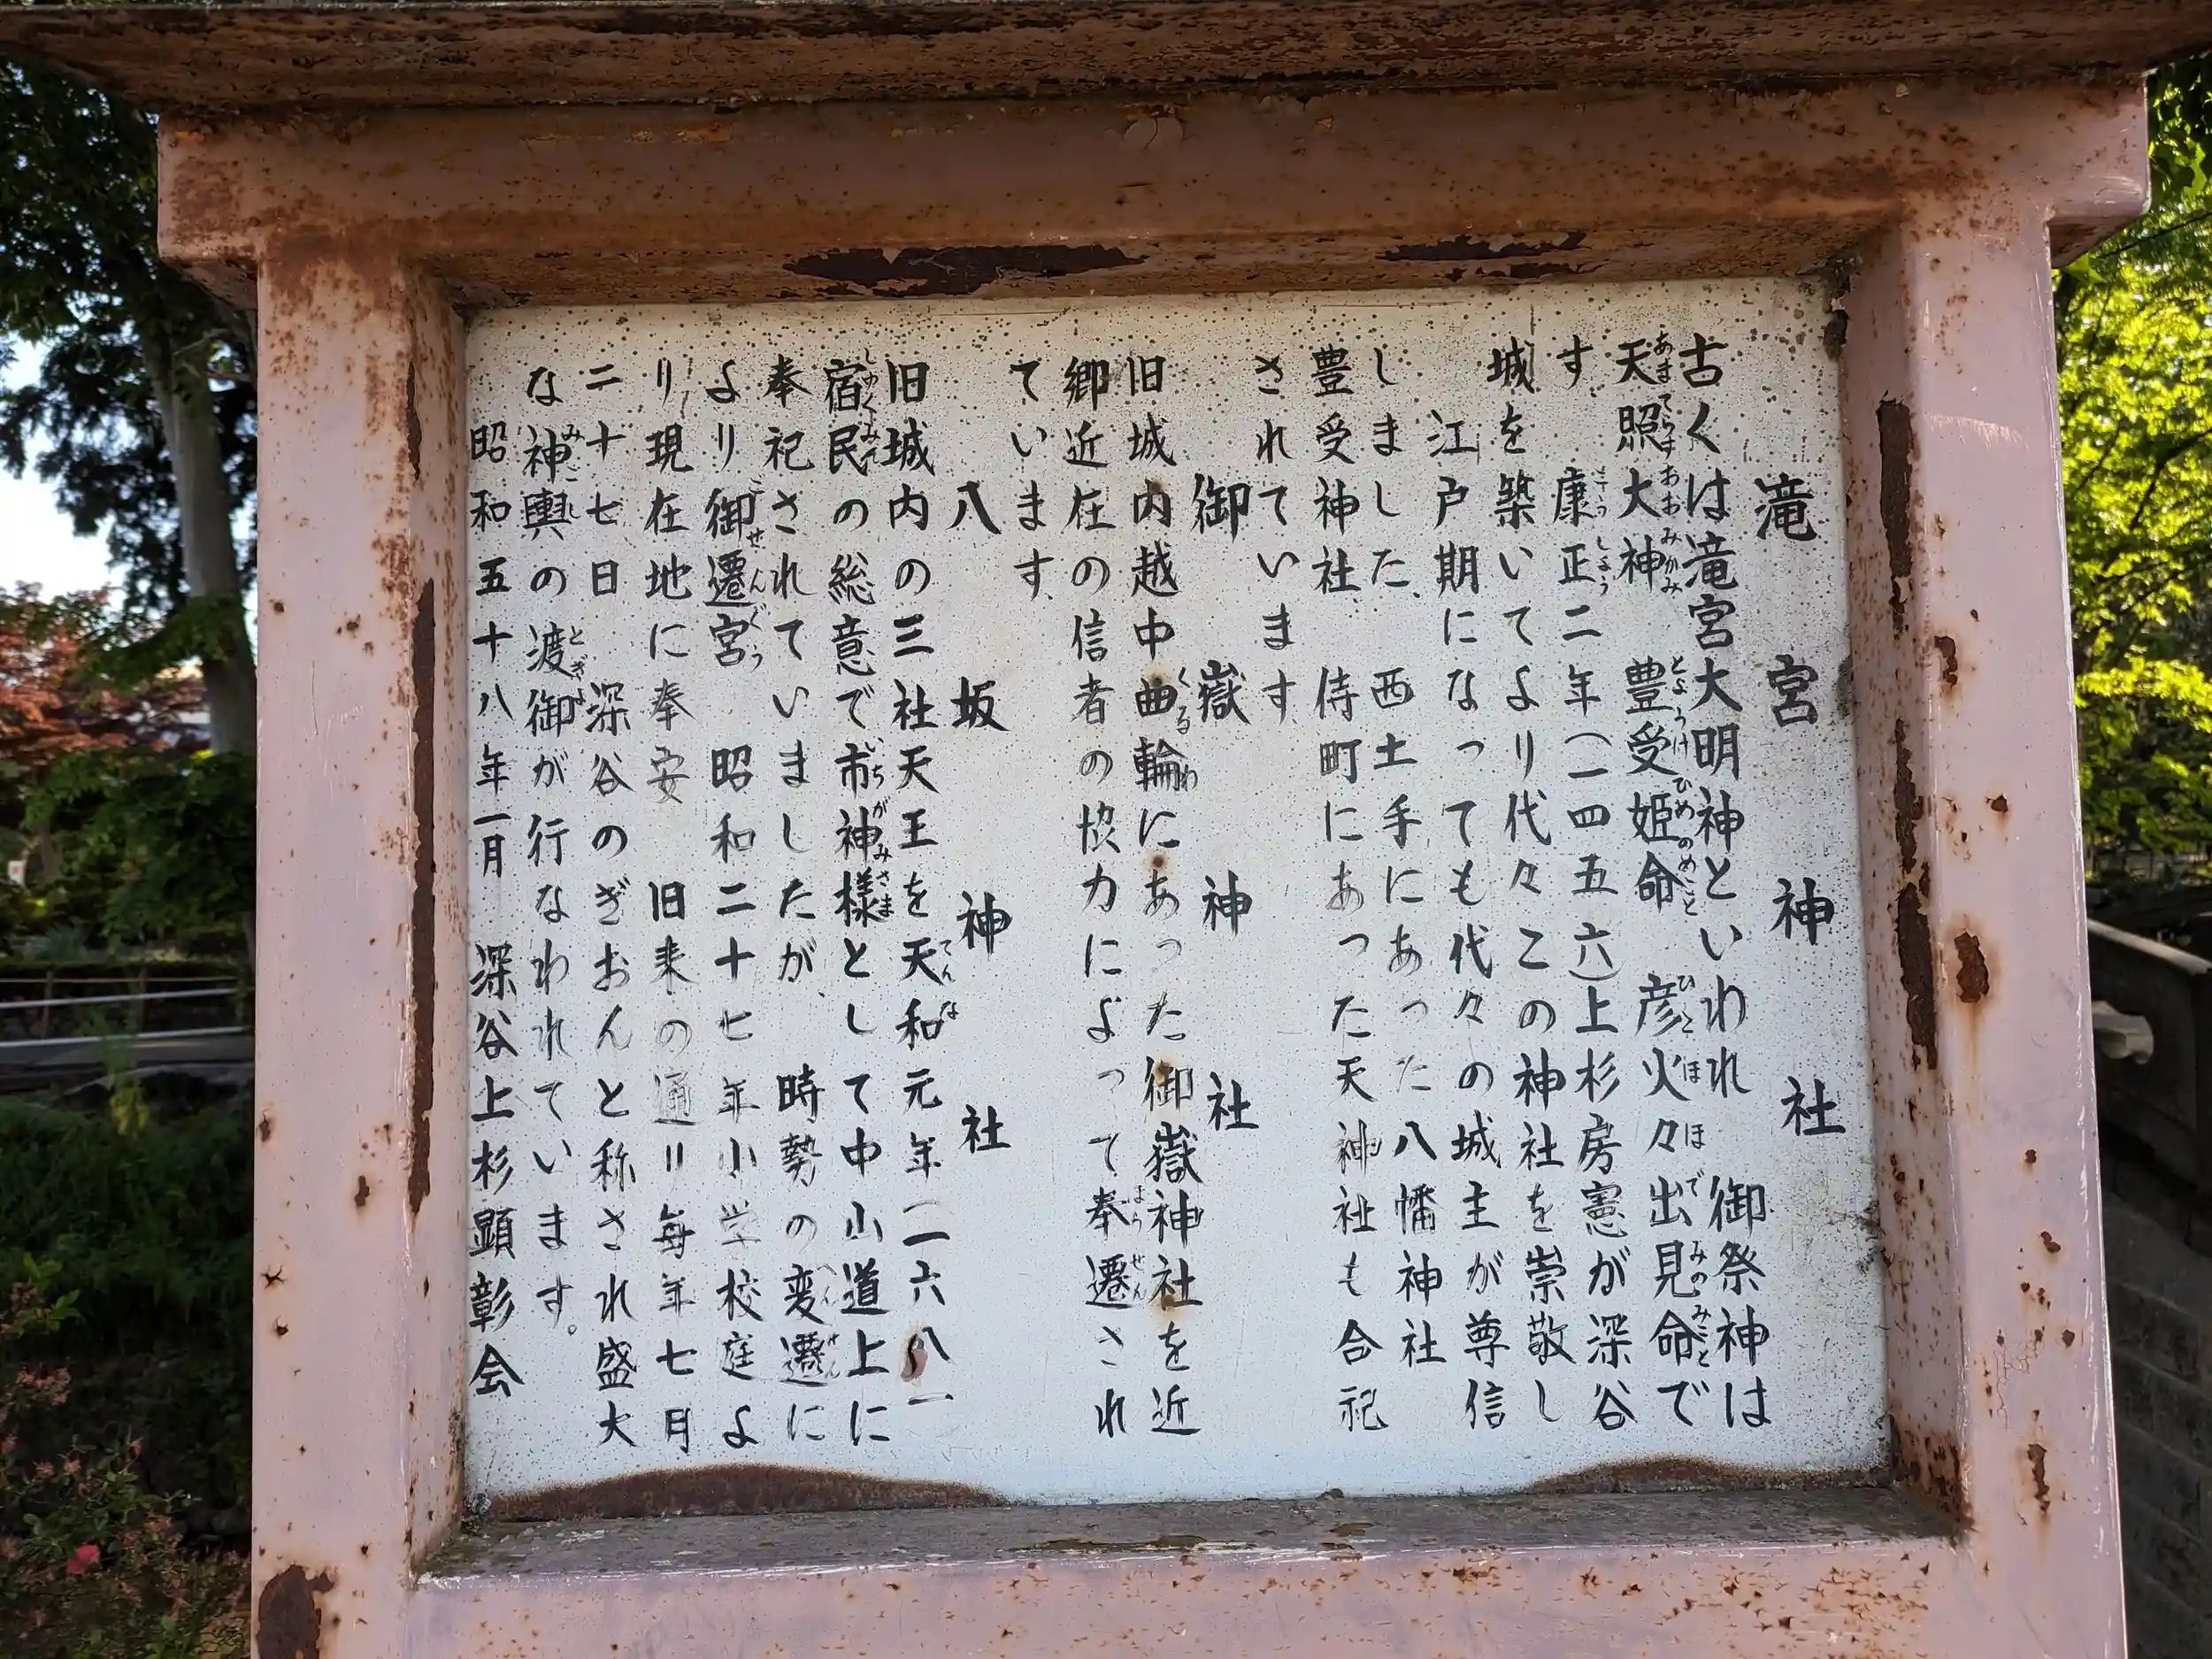 滝宮神社
古くは滝宮大明神といわれ 御祭神は
天照大神 豊受姫命 彦火々出見命で
す 康正二年(一四五六)上杉房憲が深谷
城を築いてより代々この神社を崇敬し
江戸期になっても代々の城主が尊信
しました 西土手にあった八幡神社
豊受神社 侍町にあった天神社も合祀
されています
御嶽神社
旧城内越中曲輪にあった御嶽神社を近
郷近在の信者の協力によって奉遷され
ています
八坂神社
旧城内の三社天王を天和元年(一六八一
宿民の総意で市神様として中山道上に
奉祀されていましたが、時勢の変遷に
より御遷宮 昭和二十七年小学校庭よ
り現在地に奉安 旧来の通り毎年七月
二十七日 深谷のぎおんと称され盛大
な神輿の渡御が行なわれています。
昭和五十八年一月 深谷上杉顕彰会